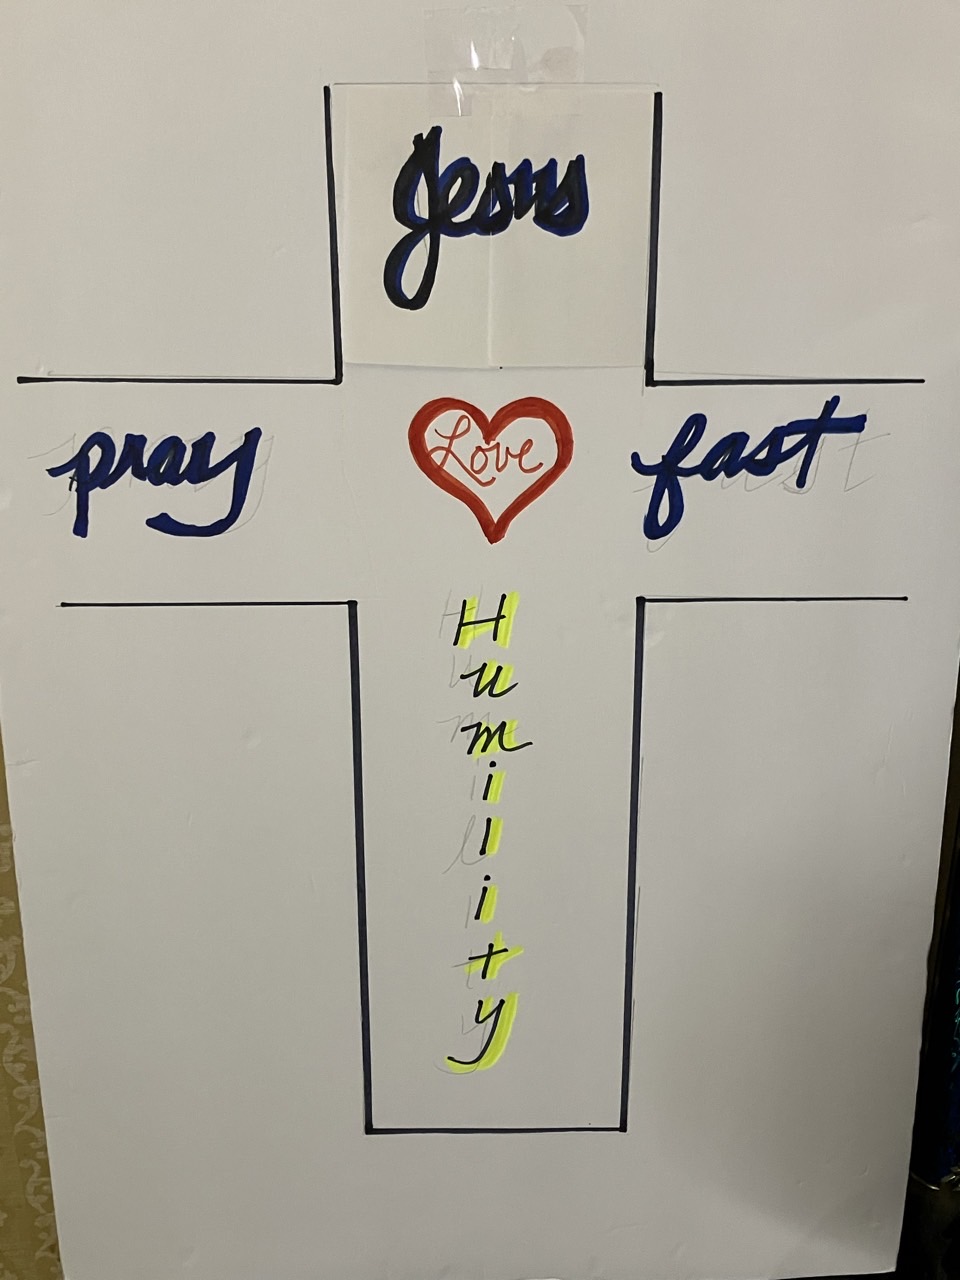 Jesus
pray Love fast
H
u
m
i
l
i
t
y